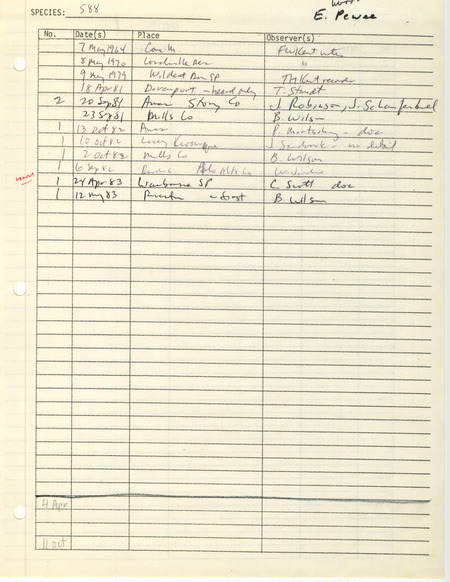 SPECIES: 588
E. Pewee
No. Date(s) Place Observer(s)
7 May 1964 Coe M. FWKent notes
8 May 1970 "
9 May 1979 Wildcat Den SP THKent records
18 Apr 81 Davenport - heard only T. Staudt
2 20 Sep 81 Ames Story Co J. Robinson, J. Schaufenbuel
23 Sep 81 Mills Co B. Wilson
1 13 Oct 82 Ames P. Martsching - doc
1 10 Oct 82 J. Sandrock - no detail
1 2 Oct 82 Mills Co B. Wilson
1 6 Sep 82 Palo Alto Co
1 24 Apr 83 Waubonsie SP C. Scott doc
1 12 May 83 Riverton - first B. Wilson
4 Apr
11 Oct